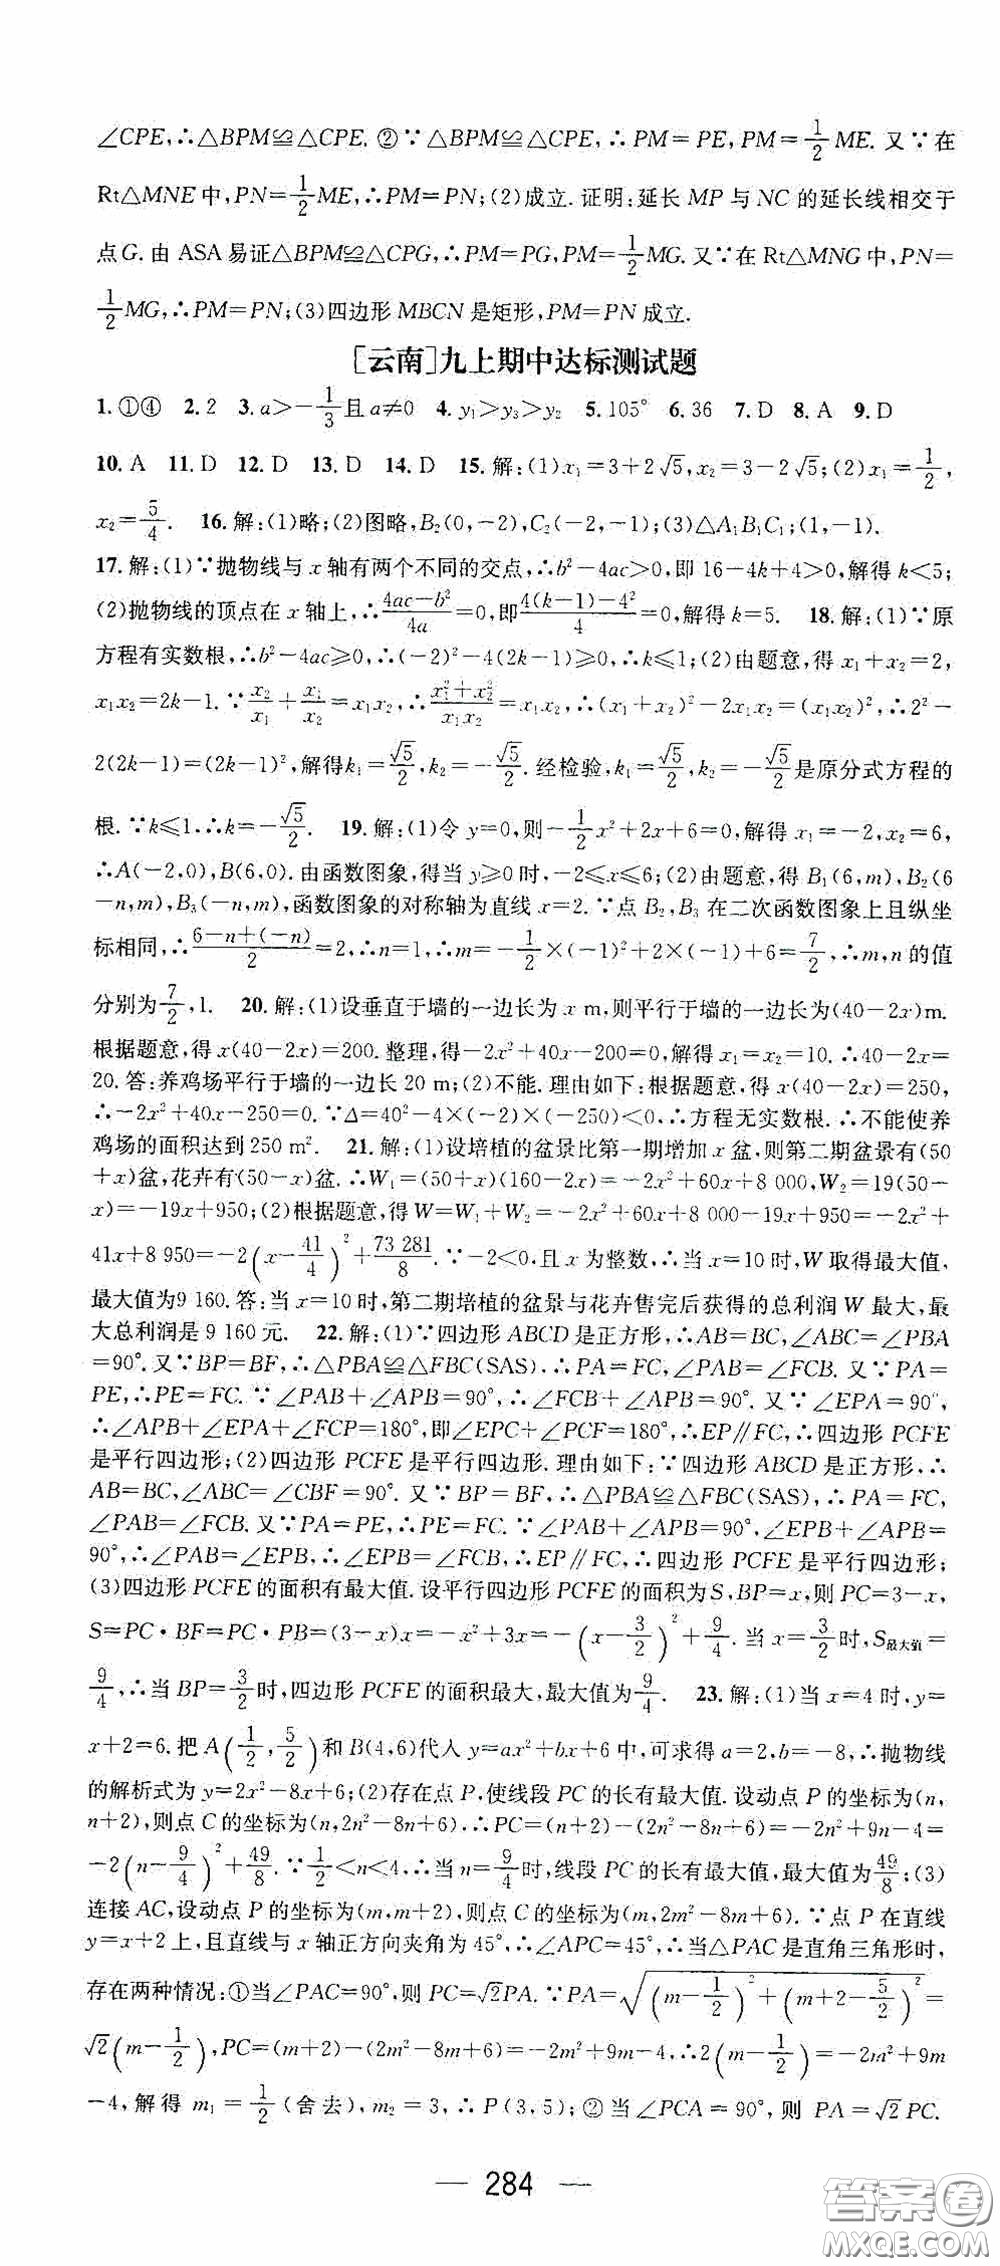 ∠CPE,∴△BPM≌△CPE. ②∵△BPM≌△CPE,∴PM=PE,PM=1/2ME. 又∵在
Rt△MNE中,PN=1/2ME,∴PM=PN;(2)成立. 证明:延长 MP 与 NC 的延长线相交于
点G. 由 ASA 易证△BPM≌△CPG,∴PM=PG,PM=1/2MG. 又∵在Rt△MNG中,PN=
1/2MG,∴PM=PN;(3)四边形 MBCN 是矩形,PM=PN 成立.
[云南]九上期中达标测试题
1. ①④ 2. 2 3. a>-1/3且a≠0 4. y₁>y₃>y₂ 5. 105° 6. 36 7. D 8. A 9. D
10. A 11. D 12. D 13. D 14. D 15. 解:(1)x₁=3+2√5,x₂=3-2√5;(2)x₁=1/2,
x₂=5/4. 16. 解:(1)略;(2)图略,B₂(0,-2),C₂(-2,-1);(3)△A₁B₁C₁;(1,-1).
17. 解:(1)∵抛物线与x轴有两个不同的交点,∴b²-4ac>0,即 16-4k+4>0,解得k<5;
(2)抛物线的顶点在x轴上,∴(4ac-b²)/4a=0,即(4(k-1)-4²)/4=0,解得k=5. 18. 解:(1)∵原
方程有实数根,∴b²-4ac⩾0,∴(-2)²-4(2k-1)⩾0,∴k⩽1;(2)由题意,得 x₁+x₂=2,
x₁x₂=2k-1. ∵x₂/x₁+x₁/x₂=x₁x₂,∴(x₁²+x₂²)/x₁x₂=x₁x₂,∴(x₁+x₂)²-2x₁x₂=(x₁x₂)²,∴2²-
2(2k-1)=(2k-1)²,解得k₁=√5/2,k₂=-√5/2. 经检验,k₁=√5/2,k₂=-√5/2是原分式方程的
根. ∵k⩽1.∴k=-√5/2. 19. 解:(1)令 y=0,则-1/2x²+2x+6=0,解得 x₁=-2,x₂=6,
∴A(-2,0),B(6,0). 由函数图象,得当y⩾0时,-2⩽x⩽6;(2)由题意,得B₁(6,m),B₂(6
-n,m),B₃(-n,m),函数图象的对称轴为直线x=2. ∵点B₂,B₃在二次函数图象上且纵坐
标相同,∴(6-n+(-n))/2=2,∴n=1,∴m=-1/2×(-1)²+2×(-1)+6=7/2,∴m,n的值
分别为7/2,1. 20. 解:(1)设垂直于墙的一边长为x m,则平行于墙的一边长为(40-2x)m.
根据题意,得x(40-2x)=200. 整理,得-2x²+40x-200=0,解得x₁=x₂=10. ∴40-2x=
20. 答:养鸡场平行于墙的一边长 20 m;(2)不能. 理由如下:根据题意,得x(40-2x)=250,
∴-2x²+40x-250=0. ∵Δ=40²-4×(-2)×(-250)<0,∴方程无实数根. ∴不能使养
鸡场的面积达到 250 m². 21. 解:(1)设培植的盆景比第一期增加x盆,则第二期盆景有(50
+x)盆,花卉有(50-x)盆. ∴W₁=(50+x)(160-2x)=-2x²+60x+8 000,W₂=19(50-
x)=-19x+950;(2)根据题意,得W=W₁+W₂=-2x²+60x+8 000-19x+950=-2x²+
41x+8 950=-2(x-41/4)²+73 281/8. ∵-2<0,且x为整数,∴当x=10时,W取得最大值,
最大值为9 160. 答:当x=10时,第二期培植的盆景与花卉售完后获得的总利润W最大,最
大总利润是 9 160 元. 22. 解:(1)∵四边形ABCD是正方形,∴AB=BC,∠ABC=∠PBA
=90°. 又∵BP=BF,∴△PBA≌△FBC(SAS),∴PA=FC,∠PAB=∠FCB. 又∵PA=
PE,∴PE=FC. ∵∠PAB+∠APB=90°,∴∠FCB+∠APB=90°. 又∵∠EPA=90°,
∴∠APB+∠EPA+∠FCP=180°,即∠EPC+∠PCF=180°,∴EP∥FC,∴四边形 PCFE
是平行四边形;(2)四边形PCFE是平行四边形. 理由如下:∵四边形ABCD是正方形,∴
AB=BC,∠ABC=∠CBF=90°. 又∵BP=BF,∴△PBA≌△FBC(SAS),∴PA=FC,
∠PAB=∠FCB. 又∵PA=PE,∴PE=FC. ∵∠PAB+∠APB=90°,∠EPB+∠APB=
90°,∴∠PAB=∠EPB,∴∠EPB=∠FCB,∴EP∥FC,∴四边形PCFE是平行四边形;
(3)四边形PCFE的面积有最大值. 设平行四边形PCFE的面积为S,BP=x,则PC=3-x,
S=PC·BF=PC·PB=(3-x)x=-x²+3x=-(x-3/2)²+9/4. 当x=3/2时,S最大值=
9/4,∴当BP=3/2时,四边形PCFE的面积最大,最大值为9/4. 23. 解:(1)当x=4时,y=
x+2=6. 把A(1/2,5/2)和B(4,6)代人y=ax²+bx+6中,可求得a=2,b=-8,∴抛物线
的解析式为y=2x²-8x+6;(2)存在点P,使线段PC的长有最大值. 设动点P的坐标为(n,
n+2),则点C的坐标为(n,2n²-8n+6). ∴PC=(n+2)-(2n²-8n+6)=-2n²+9n-4=
-2(n-9/4)²+49/8. ∵1/2<n<4,∴当n=9/4时,线段PC的长有最大值,最大值为49/8;(3)
连接AC,设动点P的坐标为(m,m+2),则点C的坐标为(m,2m²-8m+6). ∵点P在直线
y=x+2上,且直线与x轴正方向夹角为45°,∴∠APC=45°,∴当△PAC是直角三角形时,
存在两种情况:①当∠PAC=90°,则PC=√2PA. ∵PA=√((m-1/2)²+(m+2-5/2)²)=
√2(m-1/2),PC=(m+2)-(2m²-8m+6)=-2m²+9m-4,∴2(m-1/2)=-2m²+9m
-4,解得 m₁=1/2(舍去),m₂=3,∴P(3,5);②当∠PCA=90°,则 PA=√2PC.
— 284 —
答案卷
MXQE.COM